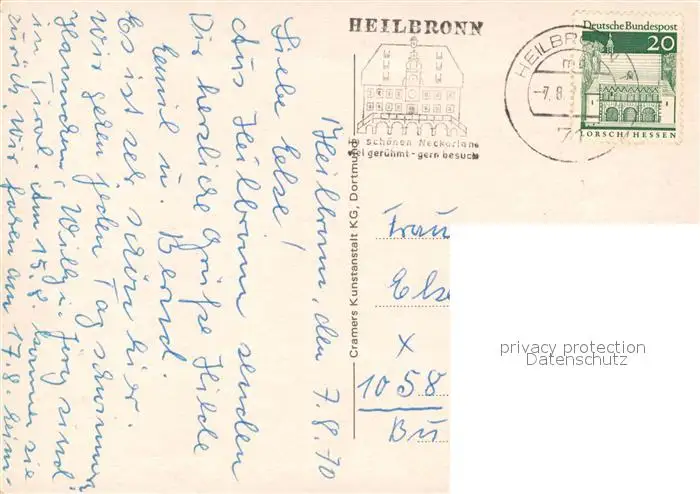 Heilbronn, den 7.8.70
Liebe Else!
Aus Heilbronn senden
Dir herzliche Grüße Hilde
Emil u. Bernd.
Es ist ser schön hier.
Wir gehen jeden Tag schwimmen
Hannchen, Willy u. Jörg sind
in Tirol. Am 15.8. kommen sie
zurück. Wir faren am 17.8. heim
Cramers Kunstanstalt KG, Dortmund
HEILBRONN
schönen Neckarland
viel gerühmt - gern besucht
HEILBRONN
-7.8.
Deutsche Bundespost
20
LORSCH/HESSEN
Frau
Else
x
1058
Bu
privacy protection
Datenschutz